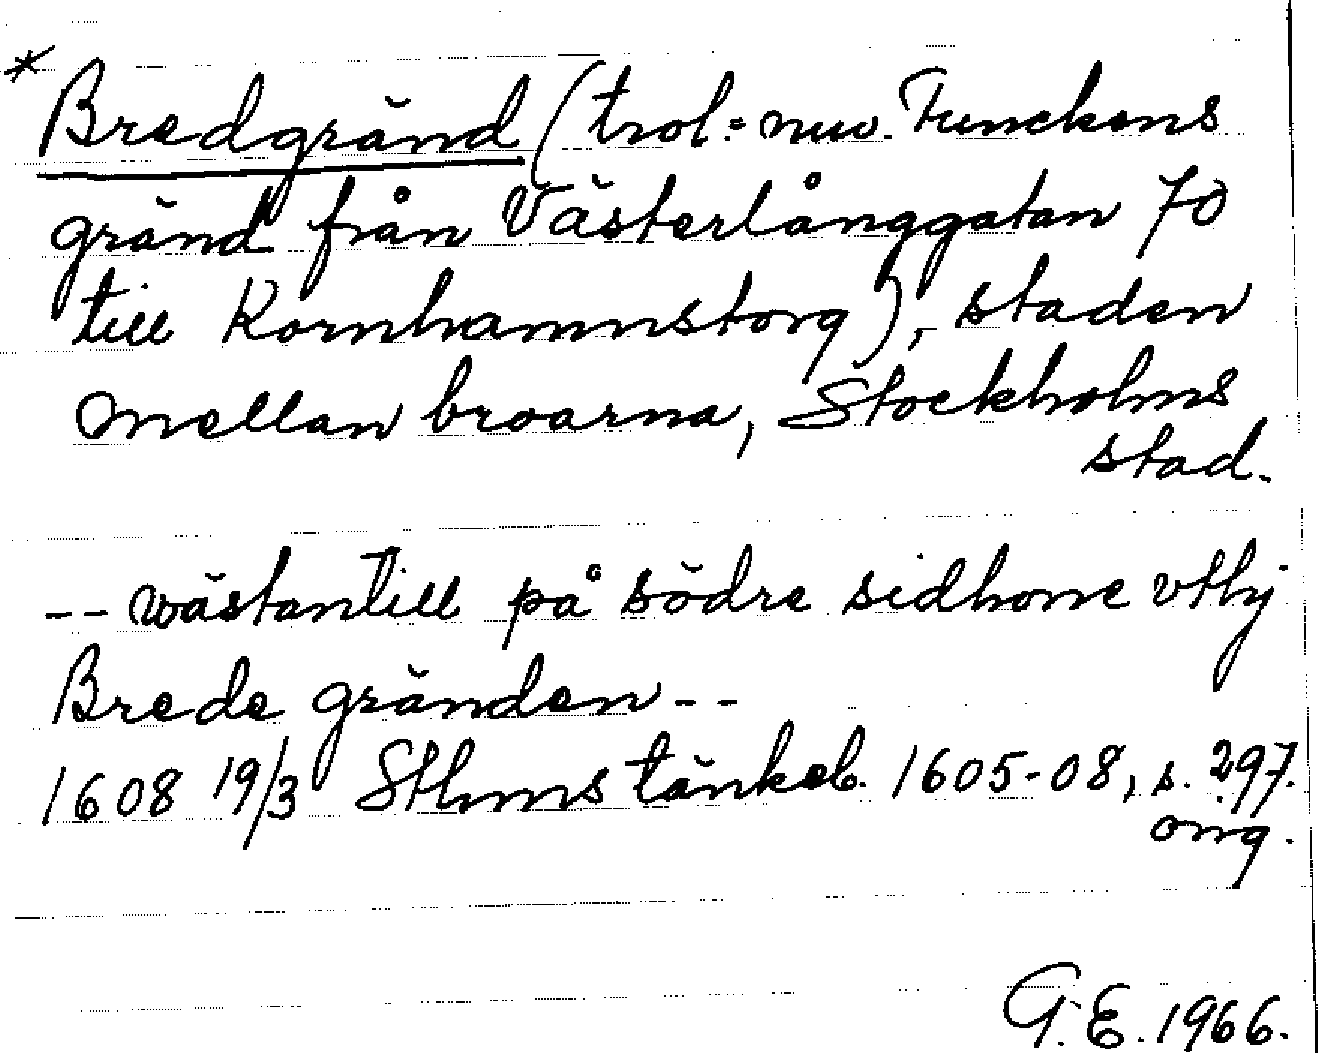 * Bredgränd (trol. = nuv. Funckens
gränd från Västerlånggatan 70
till Kornhamnstorg), staden
mellan broarna, Stockholms
stad.
-- wästantill på södre sidhone vthj
Brede gränden --
1608 19/3 Sthms tänkeb. 1605-08, s. 297.
orig.
G.E. 1966.